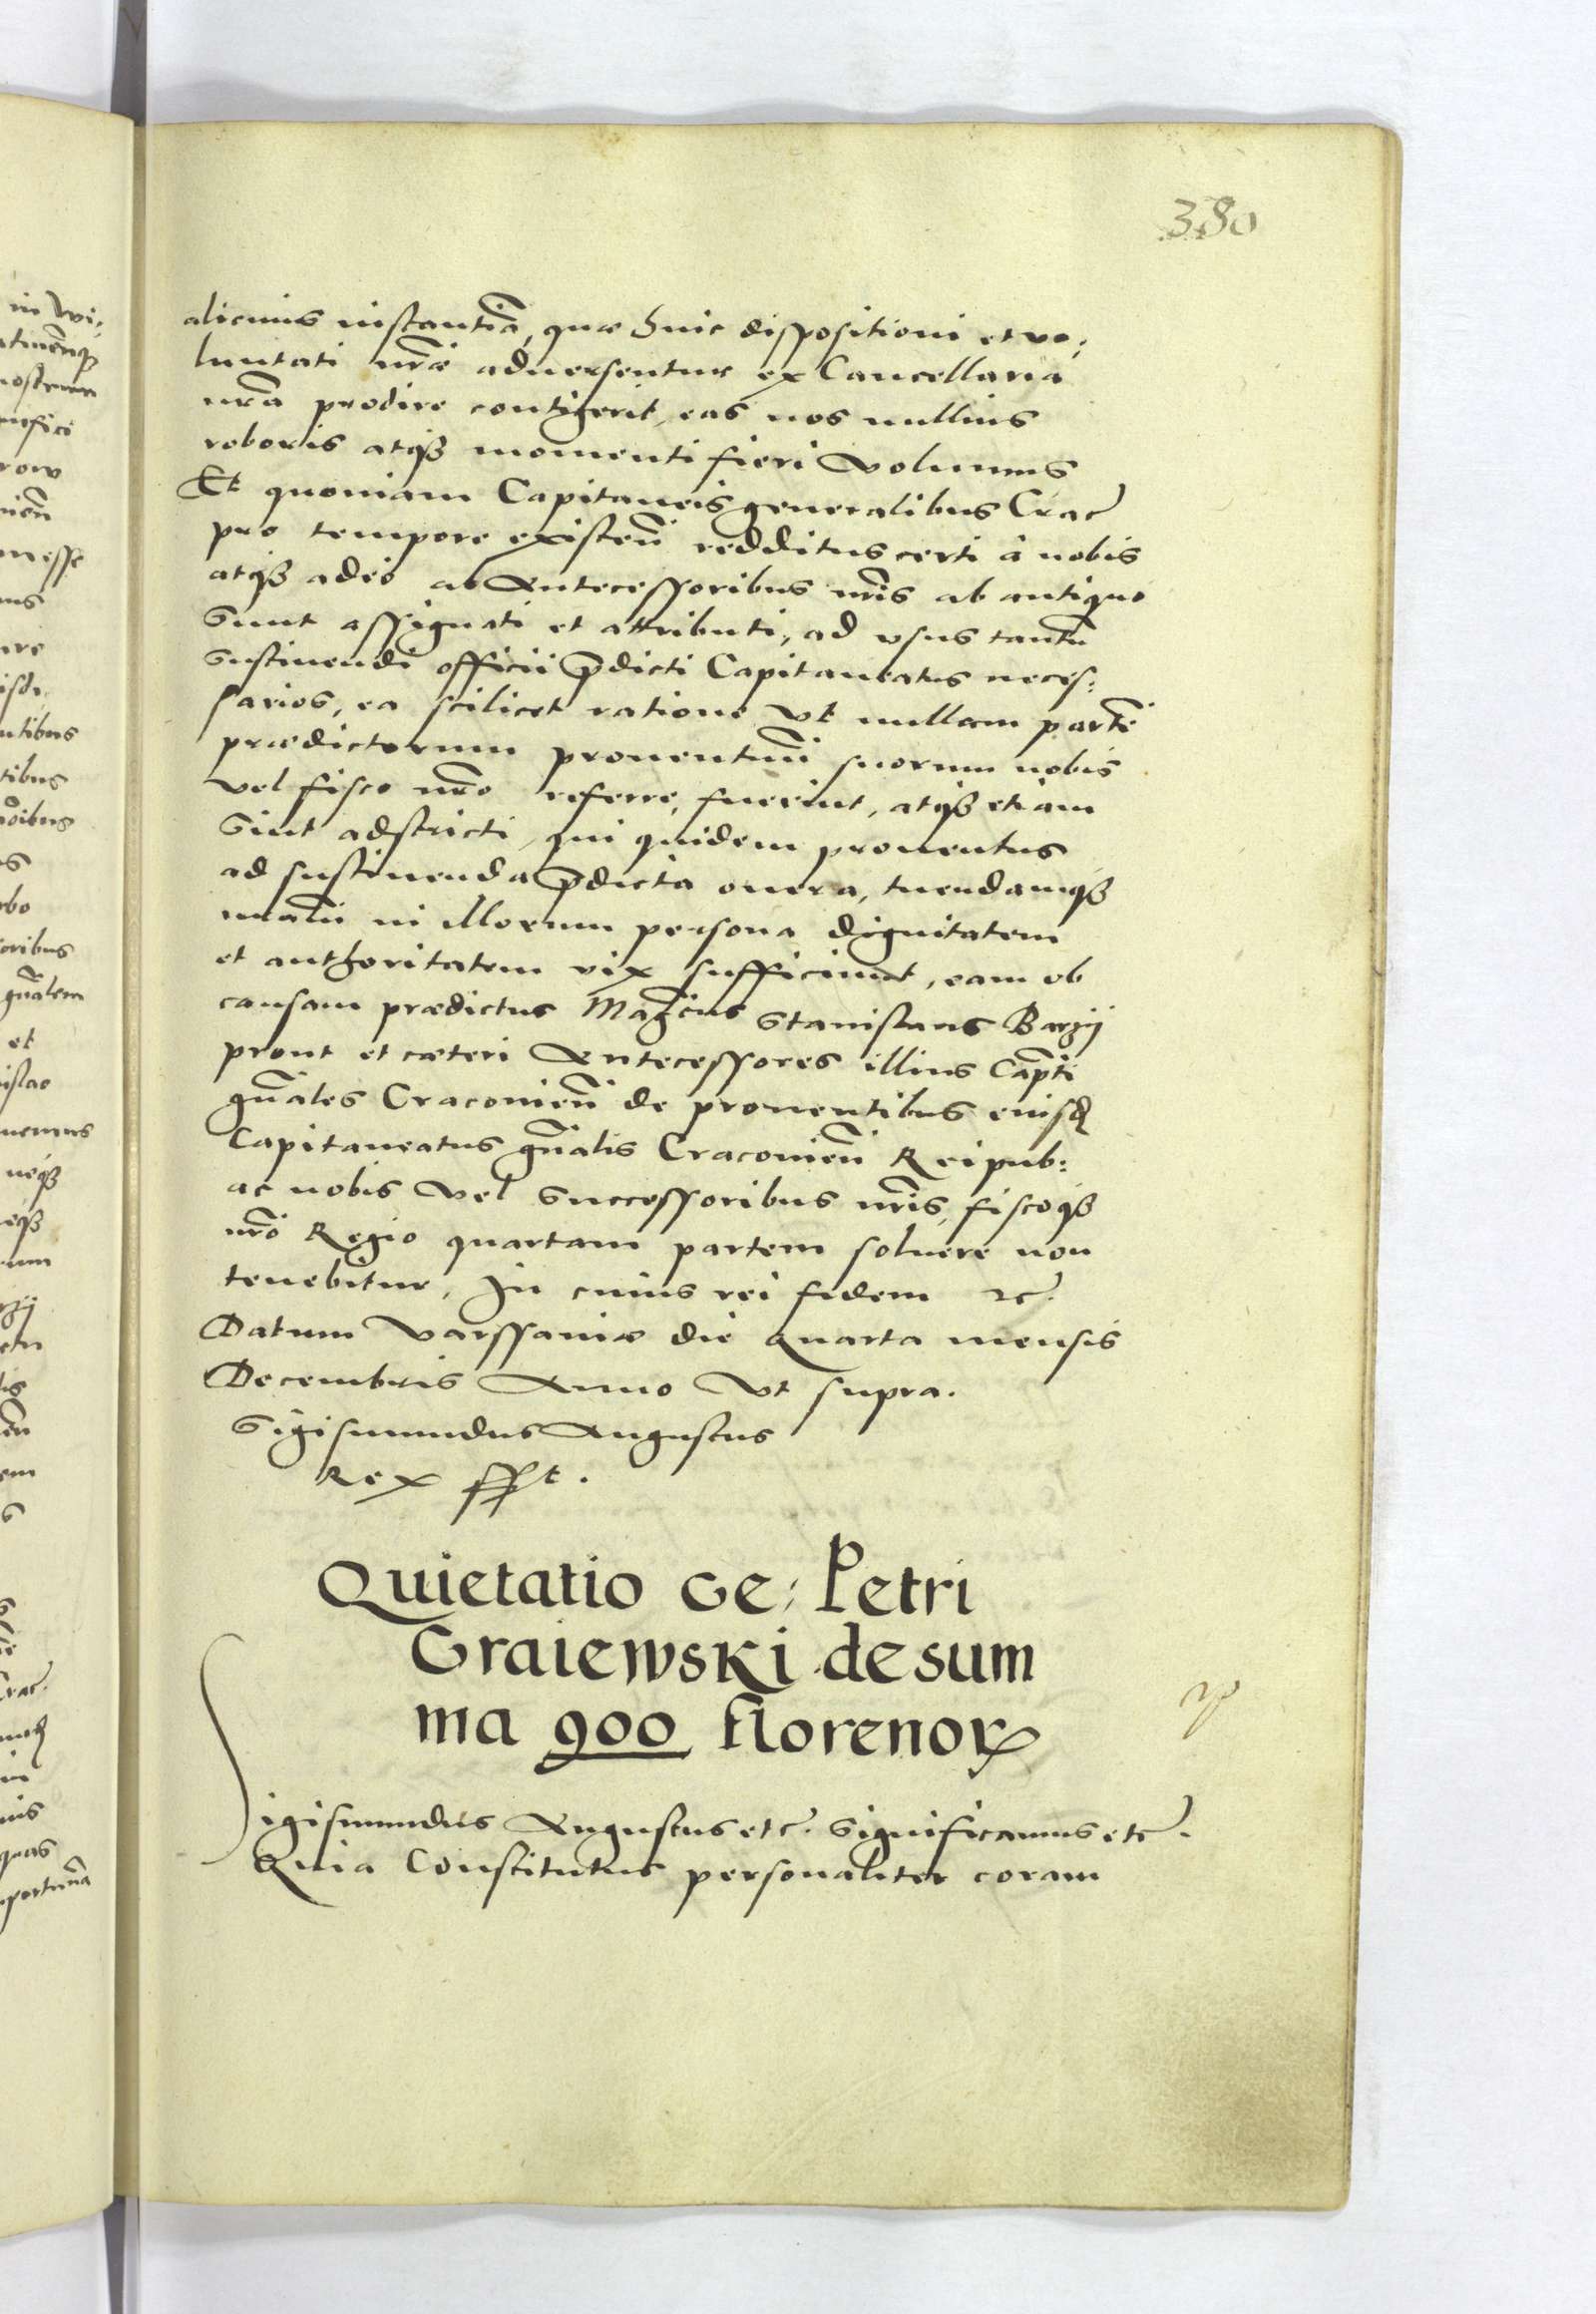 380
alicuius instantiã, quæ huic dispositioni et vo:
luntati nr̃æ aduersentur ex Cancellaria
nr̃a prodire contigerit, eas nos nullius
roboris atqꝫ momenti fieri volumus
Et quoniam Capitaneis generalibus Crac̃
pro tempore existeñ redditus certi à nobis
atqꝫ adeò ab Antecessoribus nr̃is ab antiquo
sunt assignati et attributi, ad vsus tantũ
sustinendi officii p̃dicti Capitaneatus neces:
sarios, ea scilicet ratione vt nullam partẽ
prædictorum prouentuũ suorum nobis
vel fisco nr̃o referre, fuerint, atqꝫ etiam
sint adstricti, qui quidem prouentus
ad sustinenda p̃dicta onera, tuendamqꝫ
nr̃am in illorum persona dignitatem
et authoritatem vix sufficiunt, eam ob
causam prædictus Mag̃cus Stanislaus Barzÿ
prout et cæteri Antecessores illius Cap̃ti
gñales Cracouieñ de prouentibus eiusd̃
Capitaneatus gñalis Cracouieñ Reipub:
ac nobis vel Successoribus nr̃is, fiscoqꝫ
nr̃o Regio quartam partem soluere non
tenebitur, In cuius rei fidem etc̃.
Datum Varssauiæ die Quarta mensis
Decembris Anno Vt supra.
Sigismundus Augustus
Rex sspt.
Quietatio Ge: Petri
Graiewski de sum
ma 900 florenoꝝ
Sigismundus Augustus etc̃. Significamus etc̃.
Quia Constitutus personaliter coram